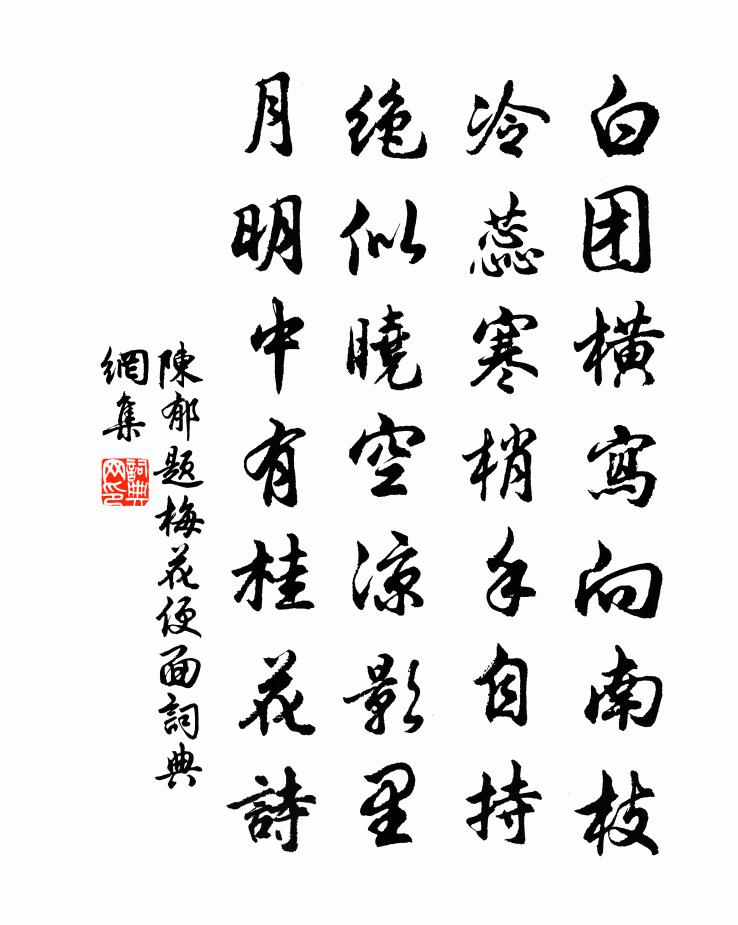 白团橫寫向南枝
冷蕊寒梢手自持
绝似曉空凉影里
月明中有桂花詩
陳郁题梅花便面詞典
網集
詞典
网印